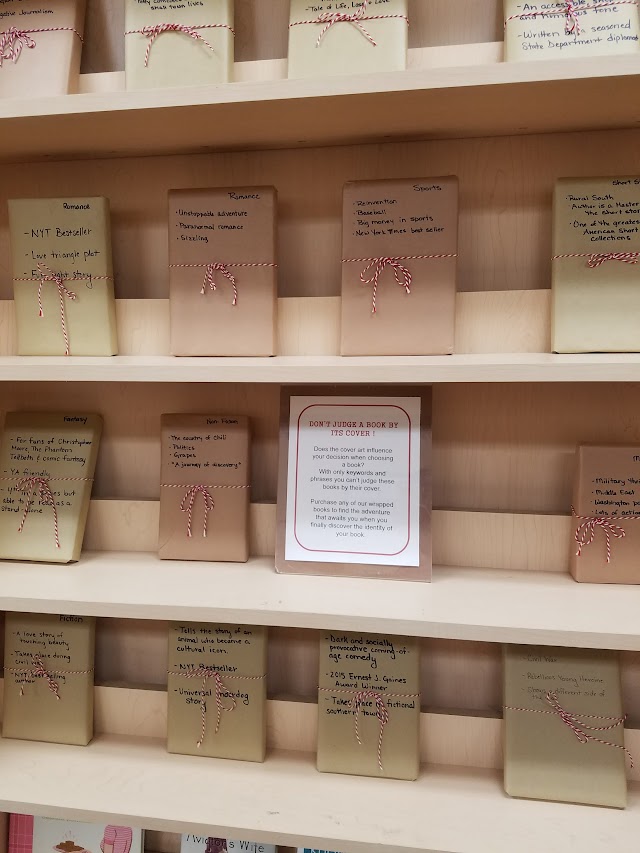 Journalism
small town lives
- Tale of Life, Love &
- An accessible,
and humorous tone
- Written by a seasoned
State Department diplomat
Romance
- NYT Bestseller
- Love triangle plot
story
Romance
- Unstoppable adventure
- Paranormal romance
- Sizzling
Sports
- Reinvention
- Baseball
- Big money in sports
- New York Times best seller
Short
- Rural South
- Author is a Master
the short
- One of the greatest
American Short
collections
Fantasy
- For fans of Christopher
Moore, The Phantom
Tollbooth & comic fantasy
- YA friendly
but
able to be read as a
stand alone
Non Fiction
- The country of Chill
- Politics
- Grapes
- "A journey of discovery"
DON'T JUDGE A BOOK BY
ITS COVER !
Does the cover art influence
your decision when choosing
a book?
With only keywords and
phrases you can't judge these
books by their cover.
Purchase any of our wrapped
books to find the adventure
that awaits you when you
finally discover the identity of
your book.
- Military
- Middle East
- Washington
- Lots of action
Fiction
- A love story of
touching beauty
- Takes place during
civil
- NYT best selling
author
- Tells the story of an
animal who became a
cultural icon.
- NYT Bestseller
- Universal dog
Story
- Dark and socially
provocative coming-of-
age comedy
- 2015 Ernest J. Gaines
Award Winner
- Takes place in fictional
southern town
- Civil War
- Rebellious Young
different side of
Aviator's Wife